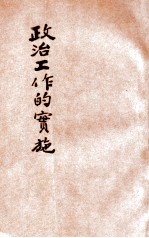 政治工作的實施